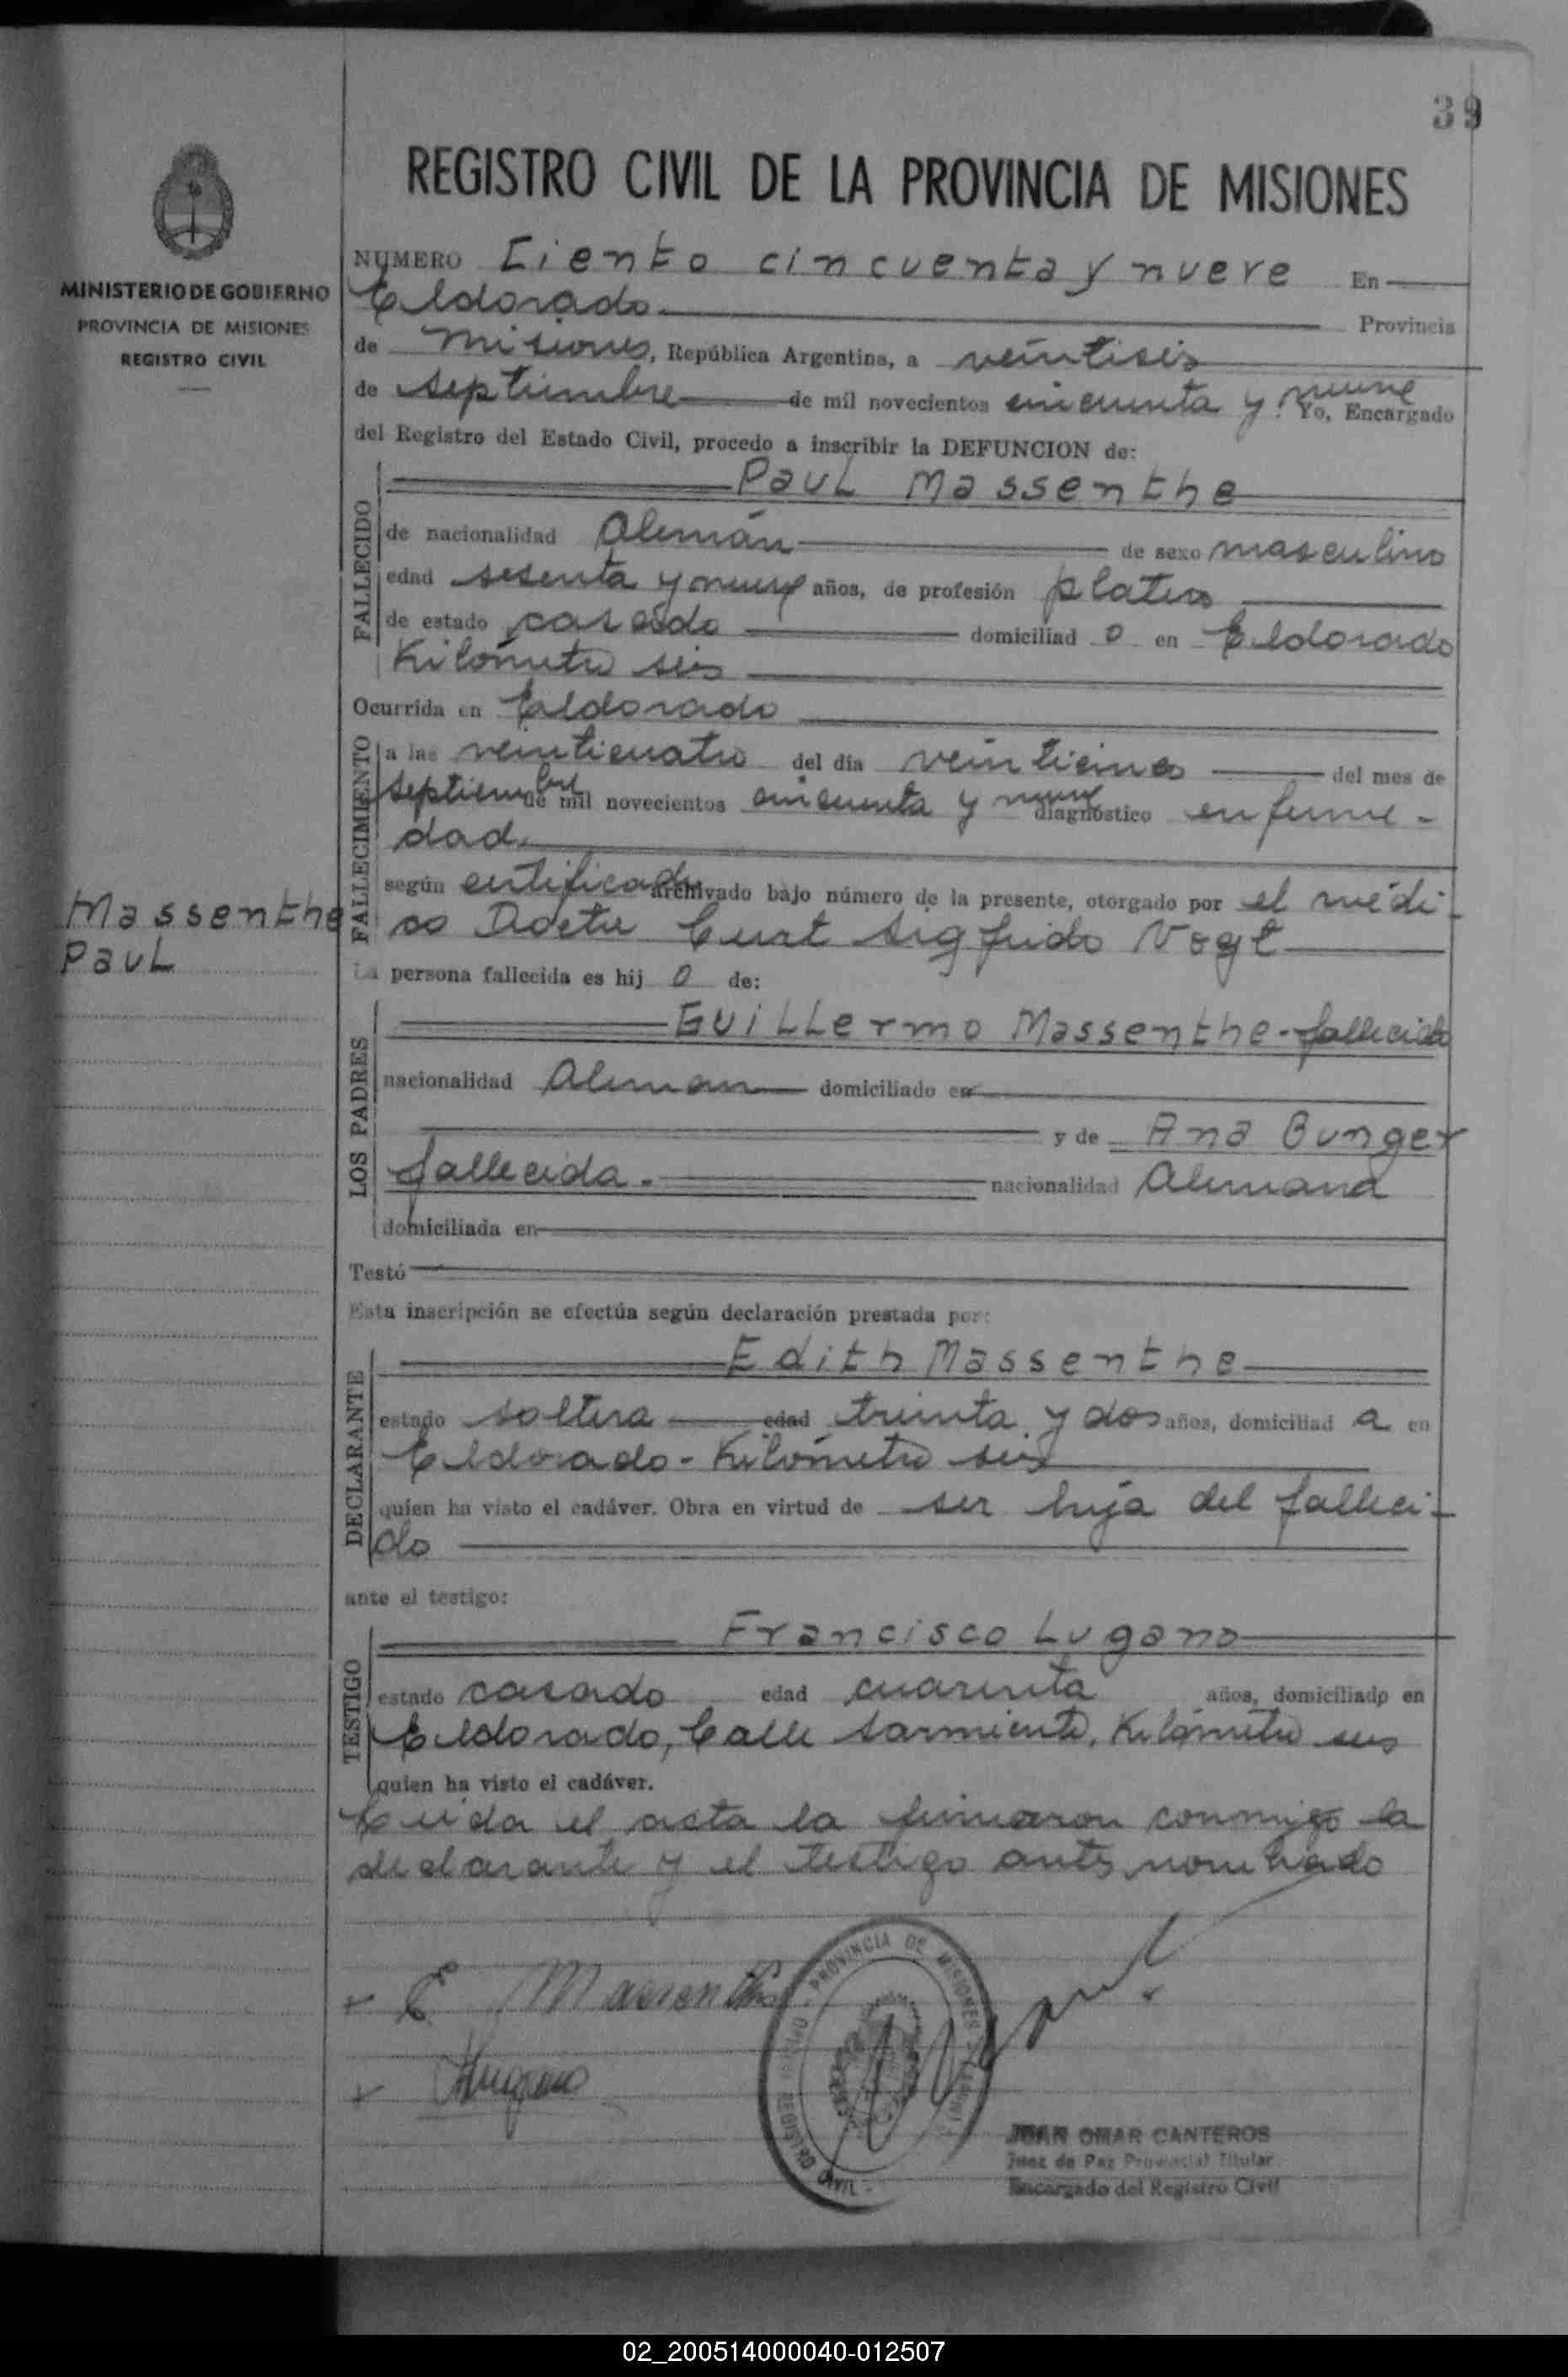 39
REGISTRO CIVIL DE LA PROVINCIA DE MISIONES
MINISTERIO DE GOBIERNO
PROVINCIA DE MISIONES
REGISTRO CIVIL
NUMERO Ciento cincuenta y nueve En
Eldorado. Provincia
de Misiones, República Argentina, a veintiseis
de septiembre de mil novecientos cincuenta y nueve. Yo, Encargado
del Registro del Estado Civil, procedo a inscribir la DEFUNCION de:
Paul Massenthe
FALLECIDO
de nacionalidad Alemán de sexo masculino
edad sesenta y nueve años, de profesión platero
de estado casado domiciliad o en Eldorado
Kilómetro seis
Ocurrida en Eldorado
FALLECIMIENTO
a las veinticuatro del día veinticinco del mes de
septiembre de mil novecientos cincuenta y nueve diagnóstico enferme-
dad.
según certificado archivado bajo número de la presente, otorgado por el médi-
co Doctor Curt Sigfrido Vogt
Massenthe
Paul
La persona fallecida es hij o de:
LOS PADRES
Guillermo Massenthe - fallecido
nacionalidad Aleman domiciliado en
y de Ana Bunger
fallecida. nacionalidad Alemana
domiciliada en
Testó
Esta inscripción se efectúa según declaración prestada por:
DECLARANTE
Edith Massenthe
estado soltera edad treinta y dos años, domiciliad a en
Eldorado - Kilómetro seis
quien ha visto el cadáver. Obra en virtud de ser hija del falleci-
do
ante el testigo:
TESTIGO
Francisco Lugano
estado casado edad cuarenta años, domiciliado en
Eldorado, Calle Sarmiento, Kilómetro seis
quien ha visto el cadáver.
Leida el acta la firmaron conmigo la
declarante y el testigo antes nombrado
+ E Massenthe
+ Lugano
PROVINCIA DE MISIONES
REGISTRO CIVIL
JUAN OMAR CANTEROS
Juez de Paz Provincial Titular
Encargado del Registro Civil
02_200514000040-012507